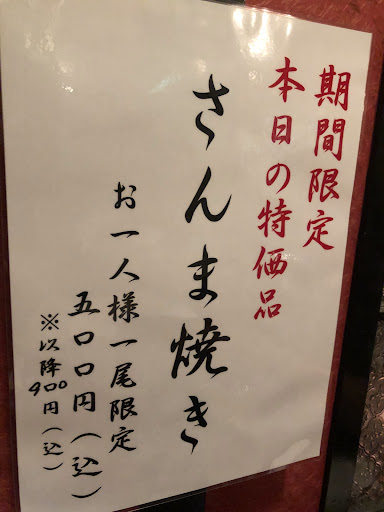 期間限定
本日の特価品
さんま焼き
お一人様一尾限定
五〇〇円（込）
※以降900円（込）